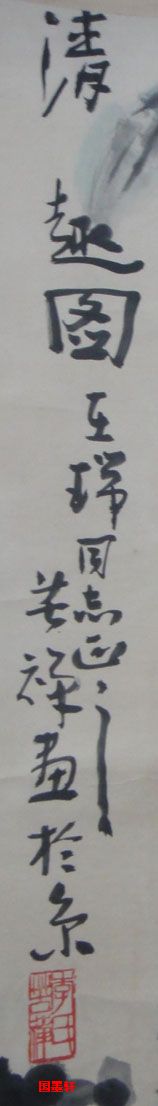 清趣图
玉瑞同志正之
苦禅画於京
国墨轩